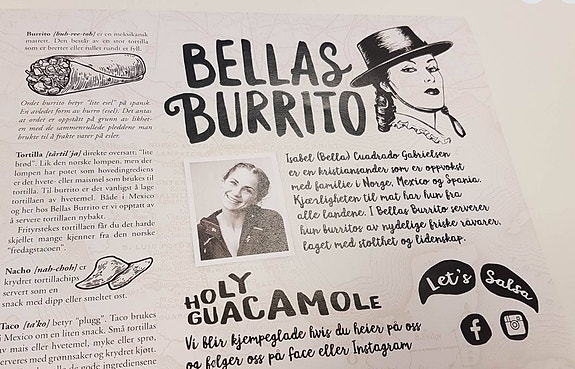 Burrito [buh-ree-toh] er en meksikansk
matrett. Den består av en stor tortilla
som er brettet eller rullet rundt et fyll.
Ordet burrito betyr "lite esel" på spansk.
En avledet form av burro (esel). Det antas
at ordet er oppstått på grunn av likhet-
en med de sammenrullede pleddene man
brukte til å frakte varer på esler.
Tortilla [tårtil'ja] direkte oversatt: "lite
brød". Lik den norske lompen, men der
lompen har potet som hovedingrediens
er det hvete- eller maismel som brukes til
tortilla. Til burrito er det vanligst å lage
tortillaen av hvetemel. Både i Mexico
og her hos Bellas Burrito er vi opptatt av
å servere tortillaen nybakt.
Frityrstekes tortillaen får du det harde
skjellet mange kjenner fra den norske
"fredagstacoen".
Nacho [nah-choh] er
krydret tortillachips
servert som en
snack med dipp eller smeltet ost.
Taco [ta'ko] betyr "plugg". Taco brukes
i Mexico om en liten snack. Små tortillas
av mais eller hvetemel, myke eller sprø,
serveres med grønnsaker og krydret kjøtt.
alle de gode ingrediensene
BELLAS
BURRITO
Isabel (Bella) Cuadrado Gabrielsen
er en kristiansander som er oppvokst
med familie i Norge, Mexico og Spania.
Kjærligheten til mat har hun fra
alle landene. I Bellas Burrito serverer
hun burritos av nydelige friske råvarer,
laget med stolthet og lidenskap.
HOLY
GUACAMOLE
Vi blir kjempeglade hvis du heier på oss
og følger oss på face eller Instagram
Let's Salsa
f